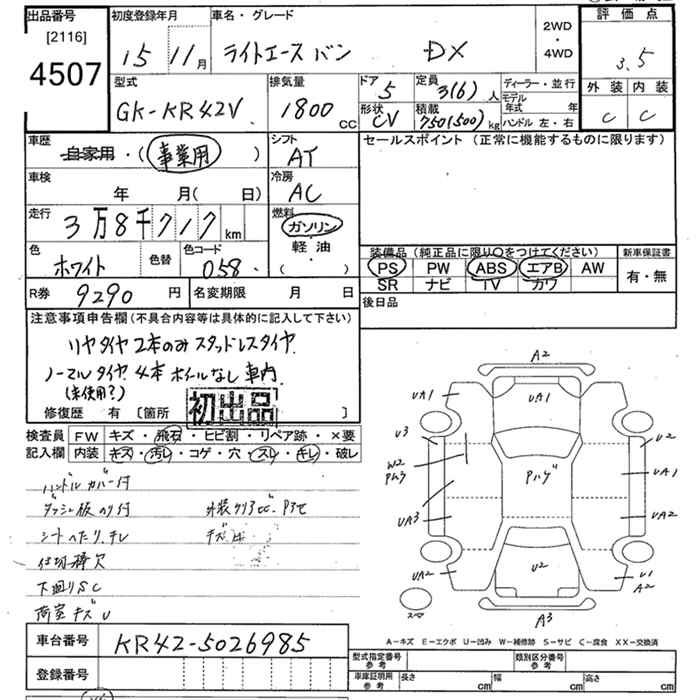 出品番号
[2116]
4507
初度登録年月
15 11月
車名・グレード
ライトエース バン DX
2WD
・
4WD
評価点
3.5
外装 内装
C C
型式
GK-KR42V
排気量
1800 CC
ドア
5
形状
CV
定員
3(6)人
積載
750(500)kg
ディーラー・並行
モデル年式 年
ハンドル 左・右
車歴
自家用・(事業用)
シフト
AT
セールスポイント (正常に機能するものに限ります)
車検
年 月(日)
冷房
AC
走行
3万8千717km
燃料
ガソリン
軽油
(・)
色
ホワイト
色替
色コード
058
装備品 (純正品に限り○をつけてください)
PS PW ABS エアB AW
SR ナビ TV カワ
新車保証書
有・無
R券 9290円
名変期限 月 日
後日品
注意事項申告欄(不具合内容等は具体的に記入して下さい)
リヤタイヤ2本のみスタッドレスタイヤ
ノーマルタイヤ4本ホイールなし車内
(未使用?)
初出品
修復歴 有 [箇所 ]
検査員 FW キズ・飛石・ヒビ割・リペア跡・×要
記入欄 内装 キズ・汚レ・コゲ・穴・スレ・キレ・破レ
ハンドルカバー付
ダッシュ板のり付
シートヘたり、チレ
欠
下回りSC
荷室キズU
A2
UA1 UA1
U3 U2
W2 Pハゲ UA1
UA3 UA2
UA2 U2 U1
A2
スペア A3
A-キズ E-エクボ U-凹み W-補修跡 S-サビ C-腐食 XX-交換済
車台番号 KR42-5026985
登録番号
型式指定番号
参考
類別区分番号
参考
車庫証明用
参考
長さ cm 幅 cm 高さ cm